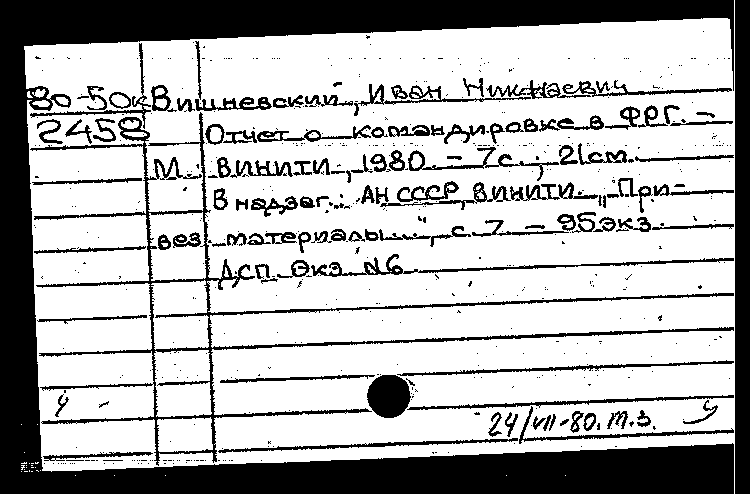 80-50к Вишневский, Иван Николаевич
2458 Отчет о командировке в ФРГ. –
М.: ВИНИТИ, 1980. – 7с.; 21см.
В надзаг.: АН СССР, ВИНИТИ. „При-
вез. материалы...", с. 7. – 95экз.
ДСП. Экз. N6.
24/VII-80. т.з.